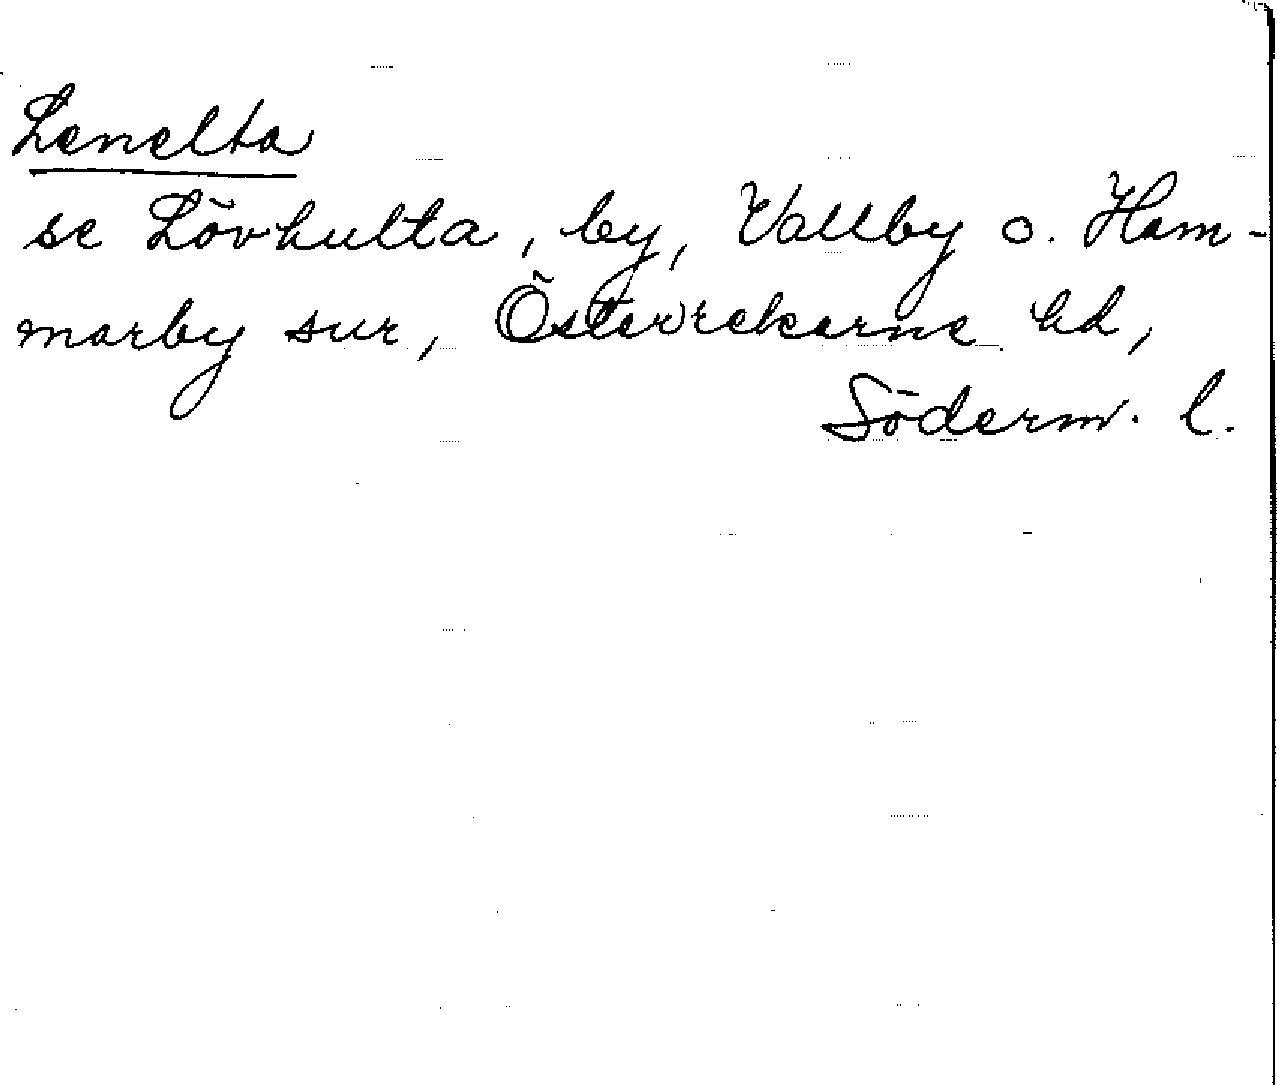 Lenelta
se Lövhulta, by, Vallby o. Ham-
marby snr, Österrekarne hd,
Söderm. l.